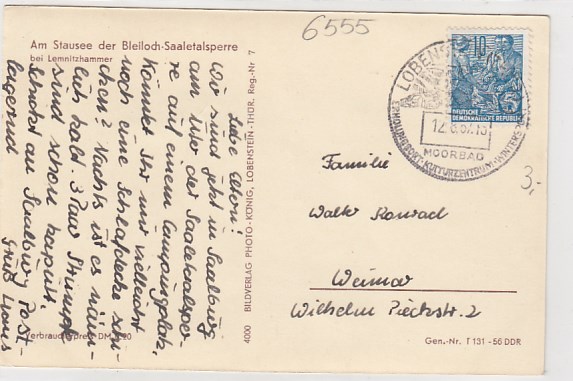 6555
Am Stausee der Bleiloch-Saaletalsperre
bei Lemnitzhammer
Liebe Eltern!
Wir sind jetzt in Saalburg
am Ufer der Saaletalsper-
re auf einem Campingplatz.
Könntet Ihr uns vielleicht
noch eine Schlafdecke schi-
cken? Nachts ist es näm-
lich kalt. 3 Paar Strümpfe
sind schon kaputt.
Schickt an Saalburg Post-
lagernd
Gruß
Verbraucherpreis DM 0,20
4000 BILDVERLAG PHOTO-KÖNIG, LOBENSTEIN-THÜR. Reg.-Nr 7
10
DEUTSCHE
DEMOKRATISCHE REPUBLIK
LOBENSTEIN
MOORBAD
ERHOLUNGSORT-KULTURZENTRUM-WINTERS
3,-
Familie
Walter Konrad
Weimar
Wilhelm Pieckstr. 2
Gen.-Nr. T 131 - 56 DDR